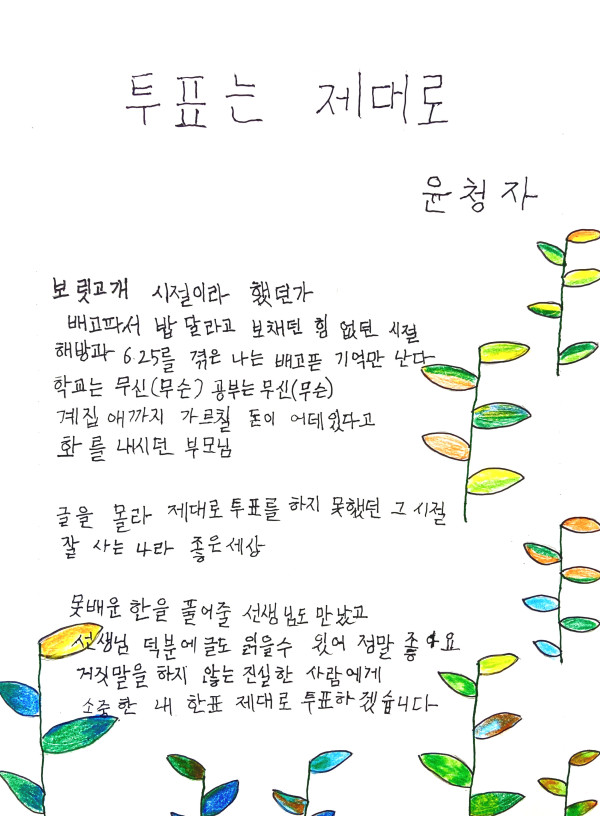 투표는 제대로
윤청자
보릿고개 시절이라 했던가
배고파서 밥 달라고 보채던 힘 없던 시절
해방과 6.25를 겪은 나는 배고픈 기억만 난다
학교는 무신(무슨) 공부는 무신(무슨)
계집애까지 가르칠 돈이 어데있다고
화를 내시던 부모님
글을 몰라 제대로 투표를 하지 못했던 그 시절
잘 사는 나라 좋은세상
못배운 한을 풀어줄 선생님도 만났고
선생님 덕분에 글도 읽을수 있어 정말 좋아요
거짓말을 하지 않는 진실한 사람에게
소중한 내 한표 제대로 투표하겠습니다